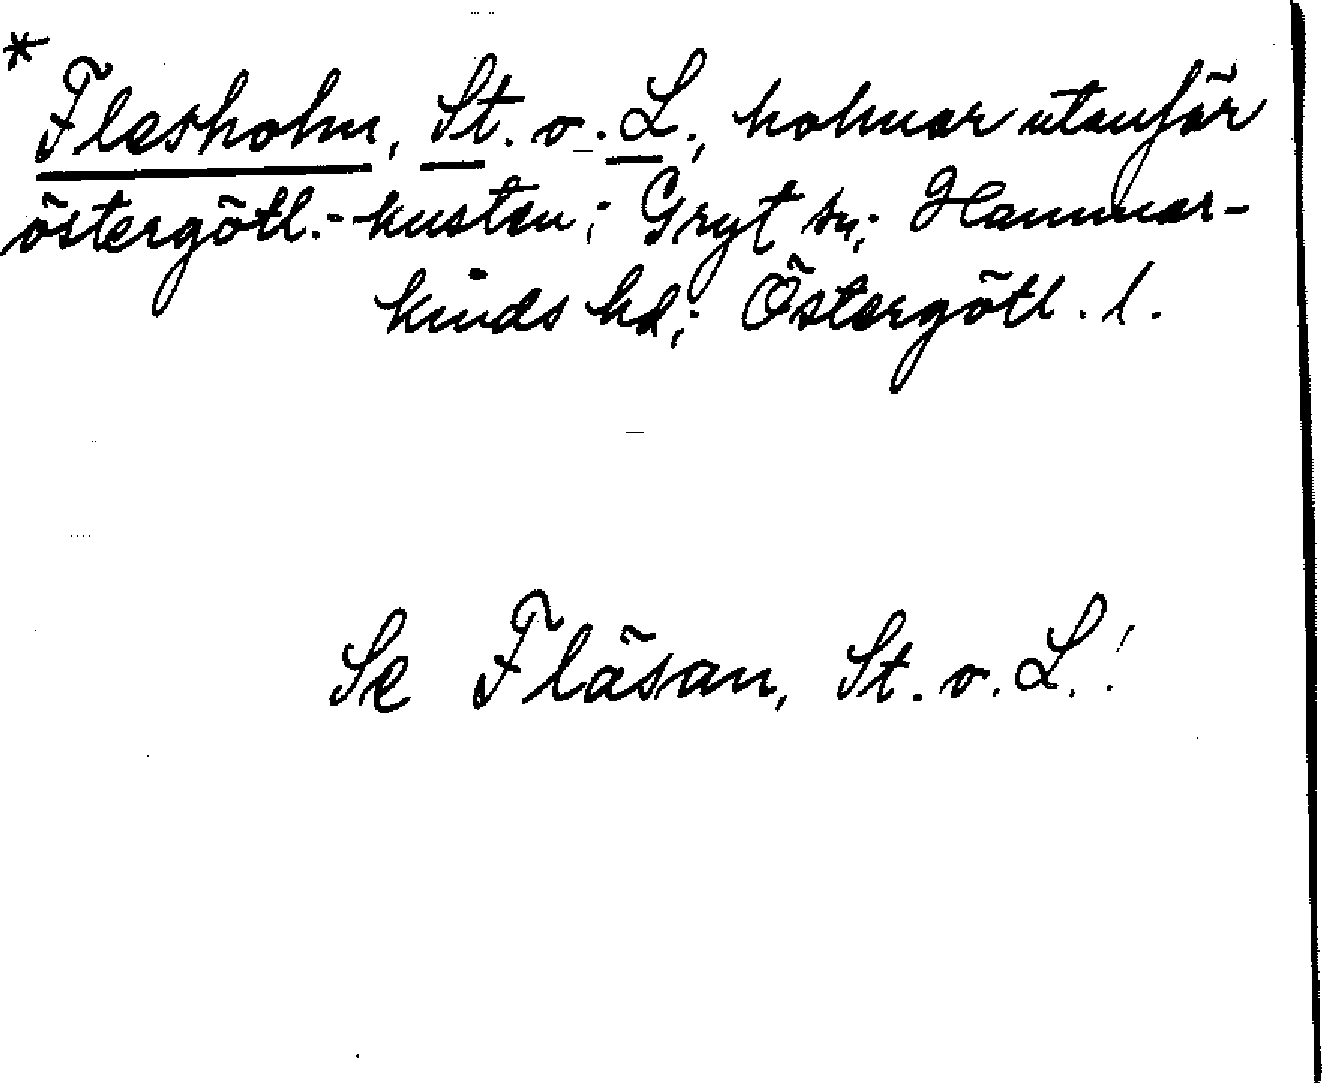 * Flesholm, St. o. L., holmar utanför
östergötl.-kusten; Gryt sn; Hammar-
kinds hd; Östergötl. l.
Se Fläsan, St. o. L.!